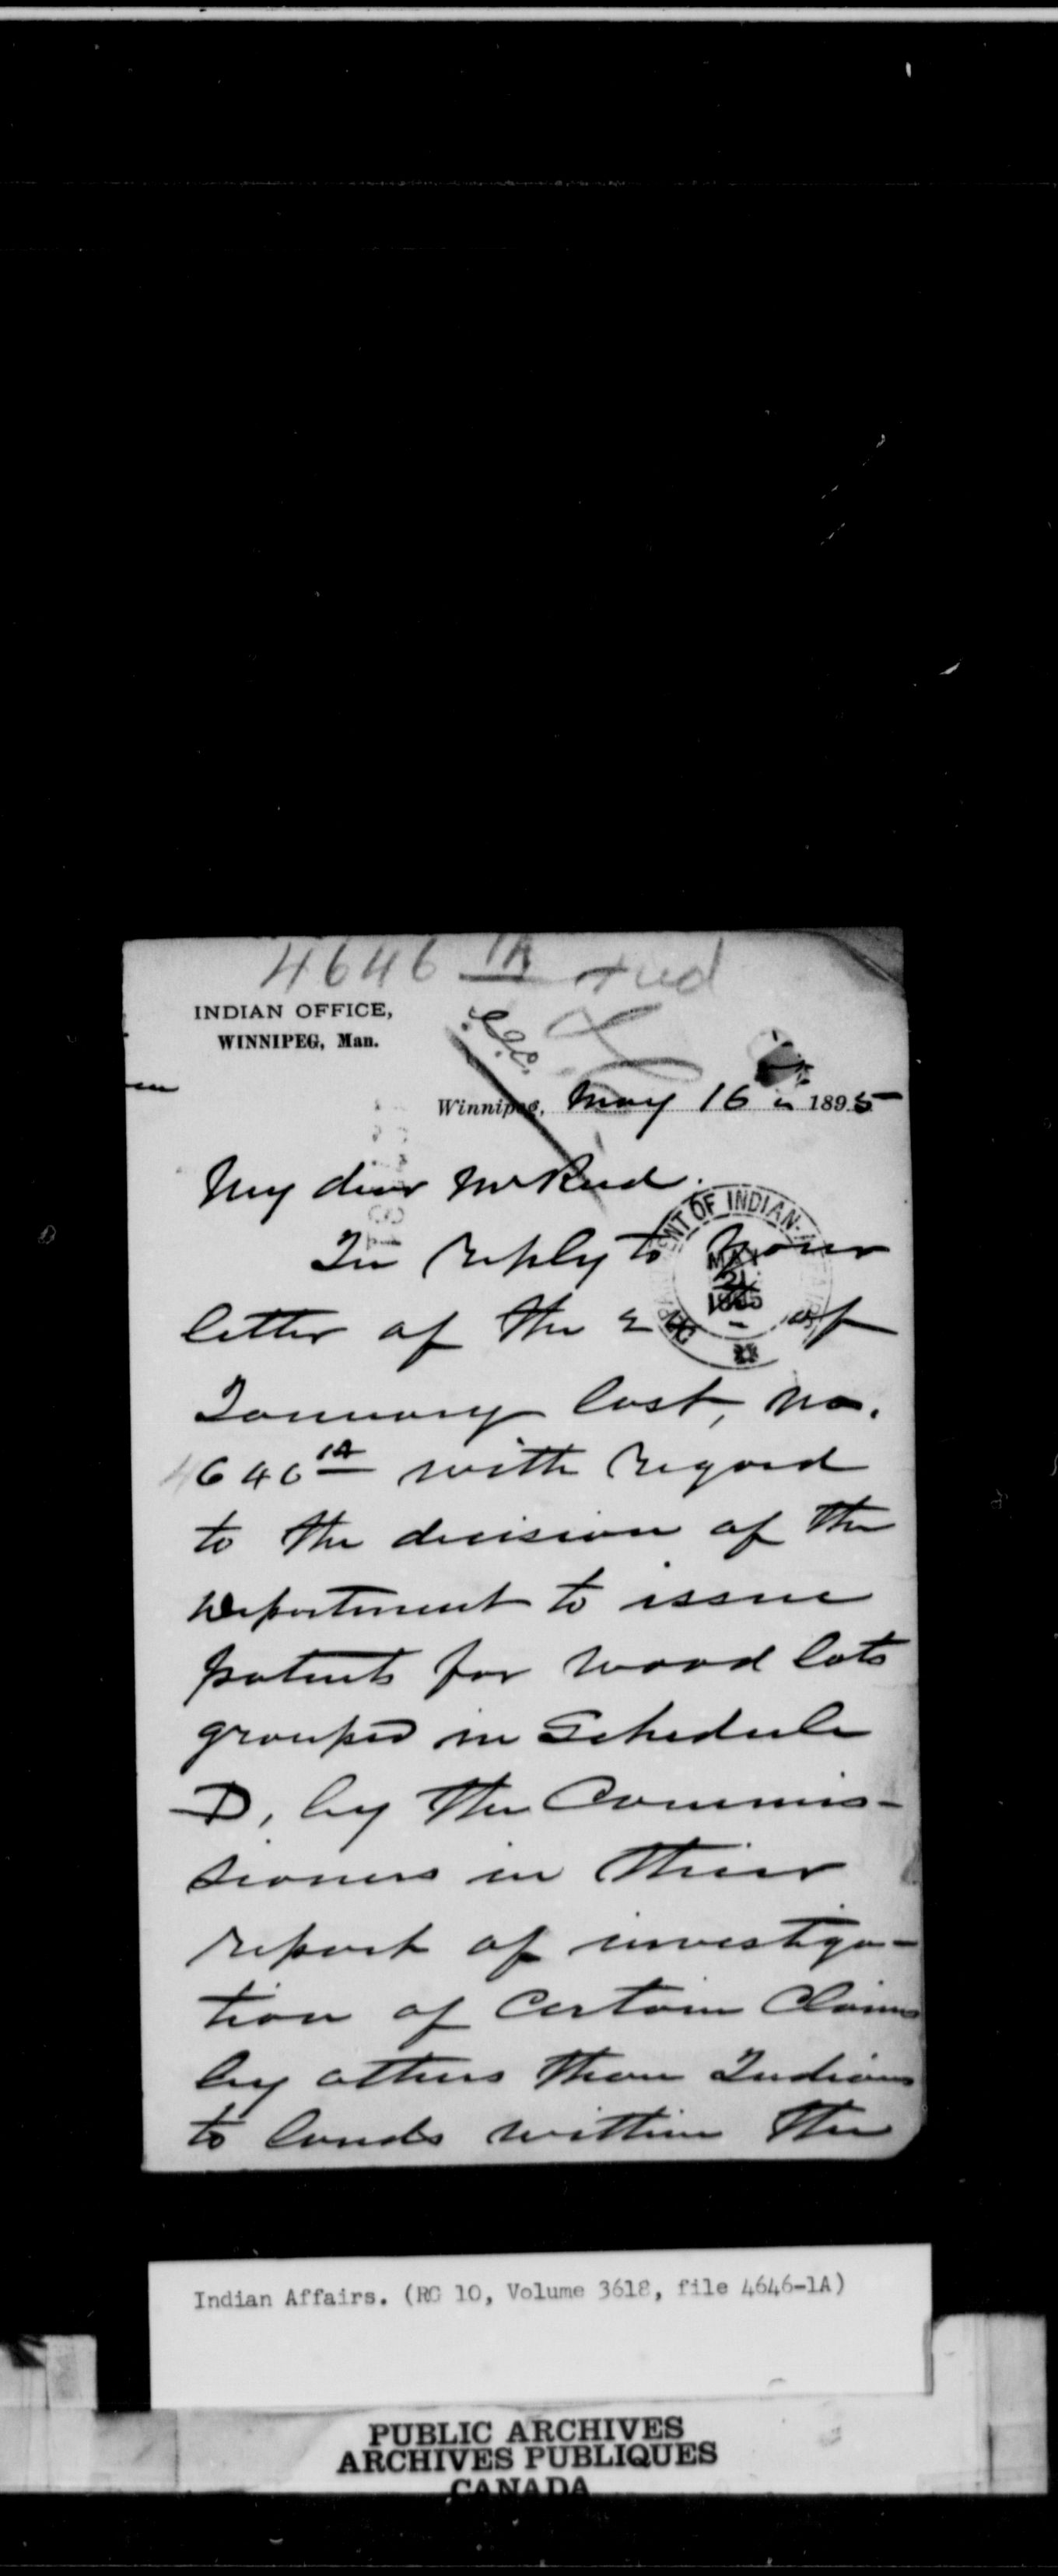 4646 1A
INDIAN OFFICE,
WINNIPEG, Man.
Winnipeg, May 16th 1895
My dear Mr Reed.
In reply to your
letter of the 2 of
January last, no.
4646 1A with regard
to the decision of the
Department to issue
patents for wood lots
grouped in Schedule
D, by the Commis-
sioners in their
report of investiga-
tion of certain Claims
by others than Indians
to lands within the
DEPARTMENT OF INDIAN AFFAIRS
MAY
21
1895
Indian Affairs. (RG 10, Volume 3618, file 4646-1A)
PUBLIC ARCHIVES
ARCHIVES PUBLIQUES
CANADA